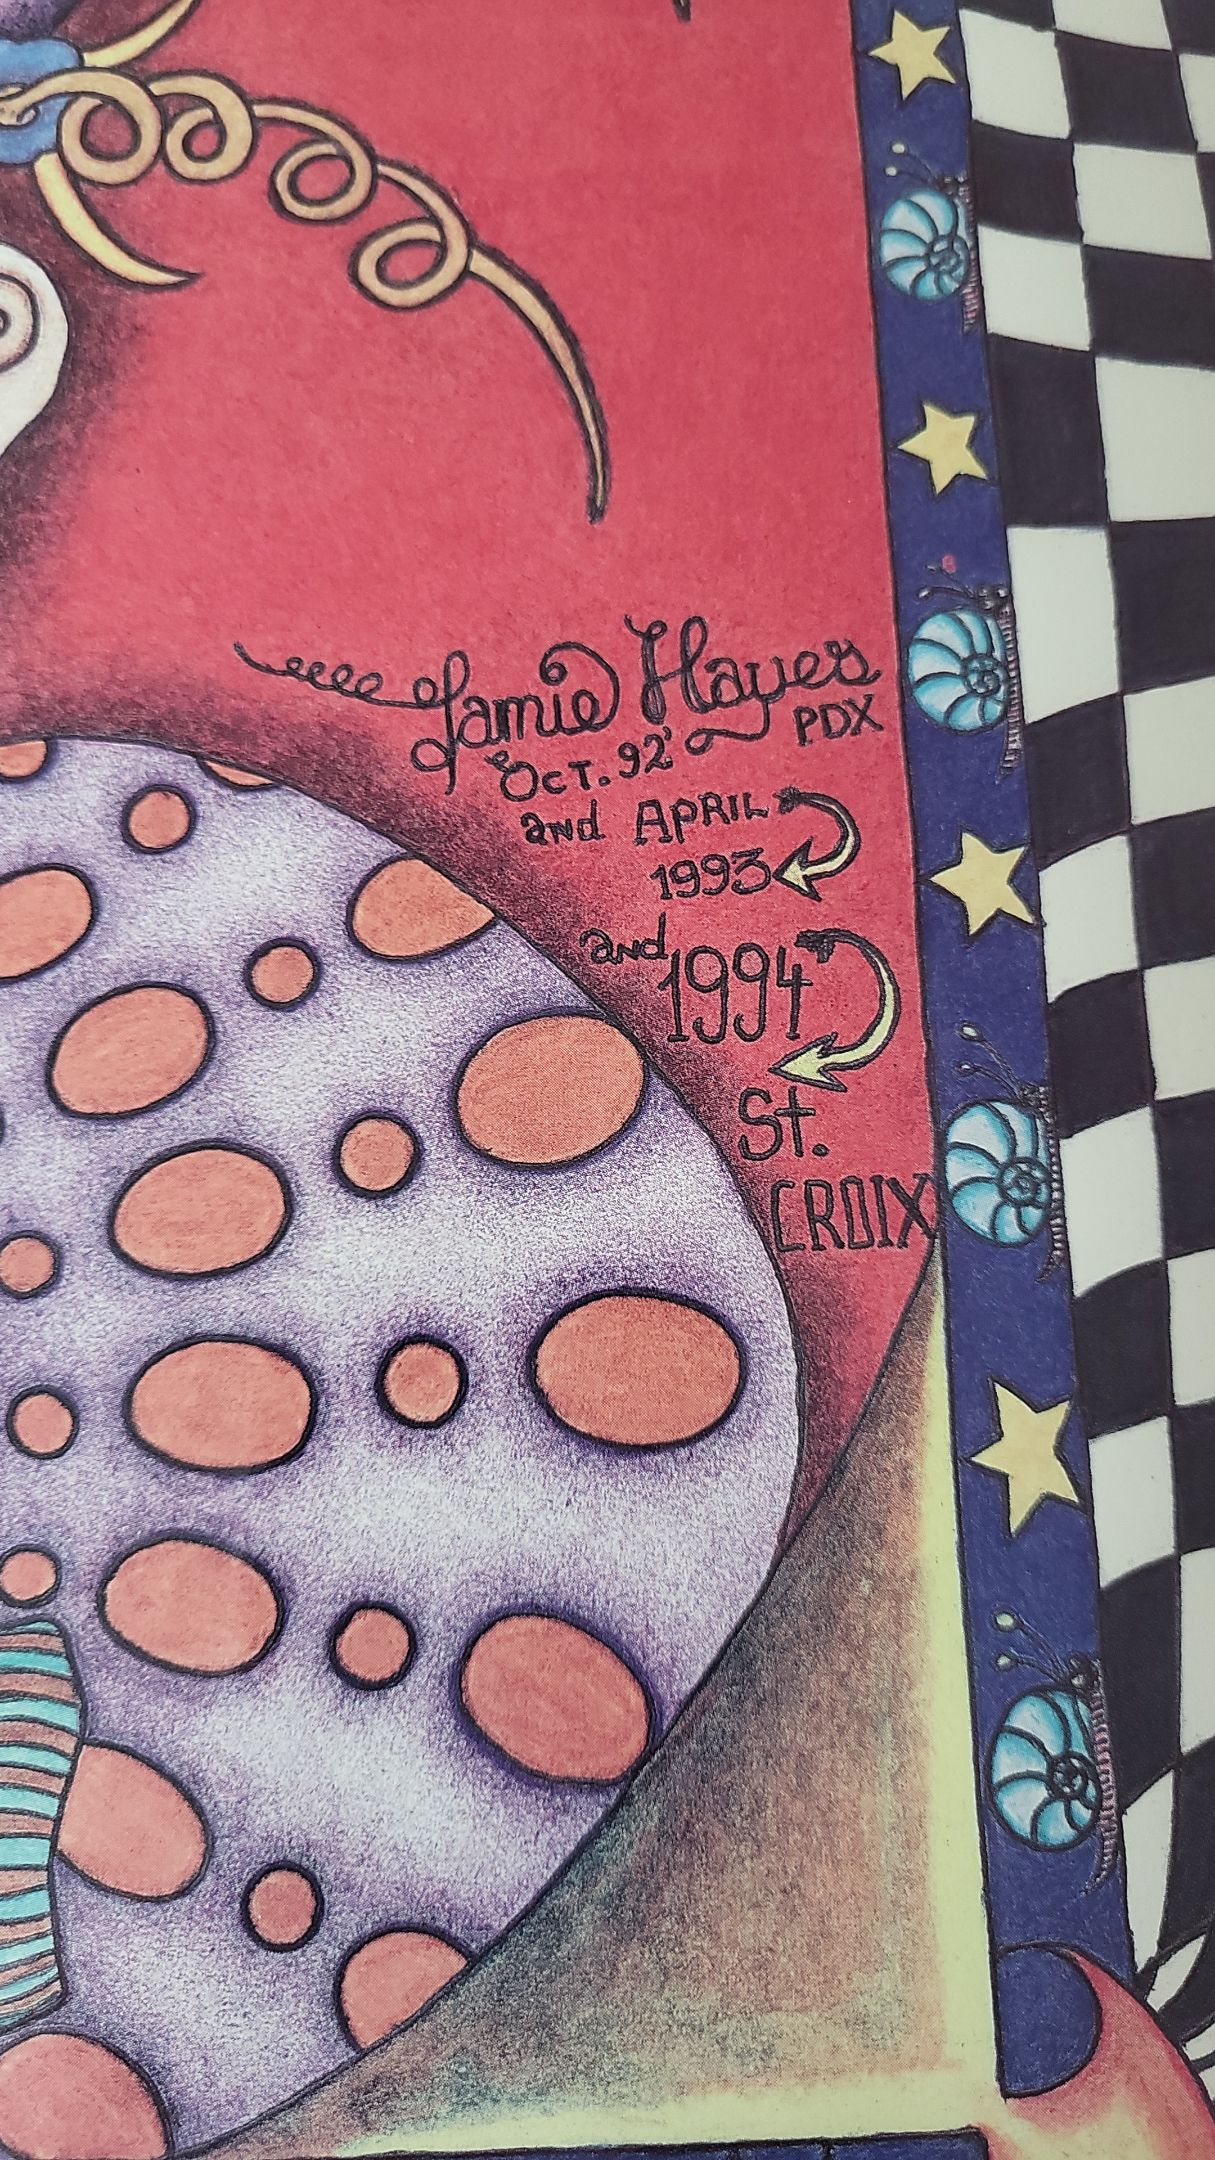 Jamie Hayes
Oct. 92' PDX
and April
1993
and 1994
St.
CROIX